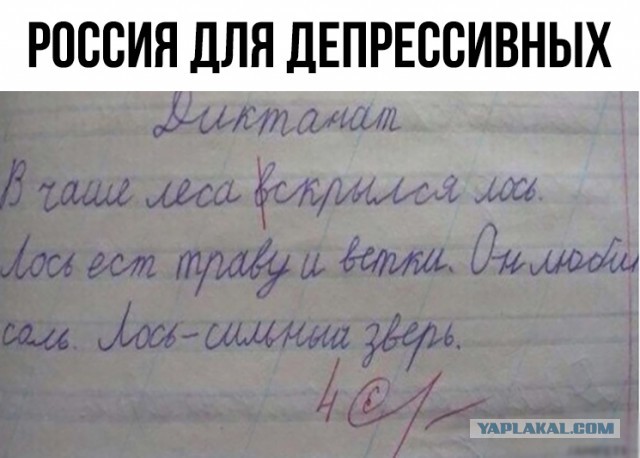 РОССИЯ ДЛЯ ДЕПРЕССИВНЫХ
Диктанат
В чаше леса вскрылся лось.
Лось ест траву и ветки. Он люби
соль. Лось-сильныа зверь.
4 с/-
YAPLAKAL.COM